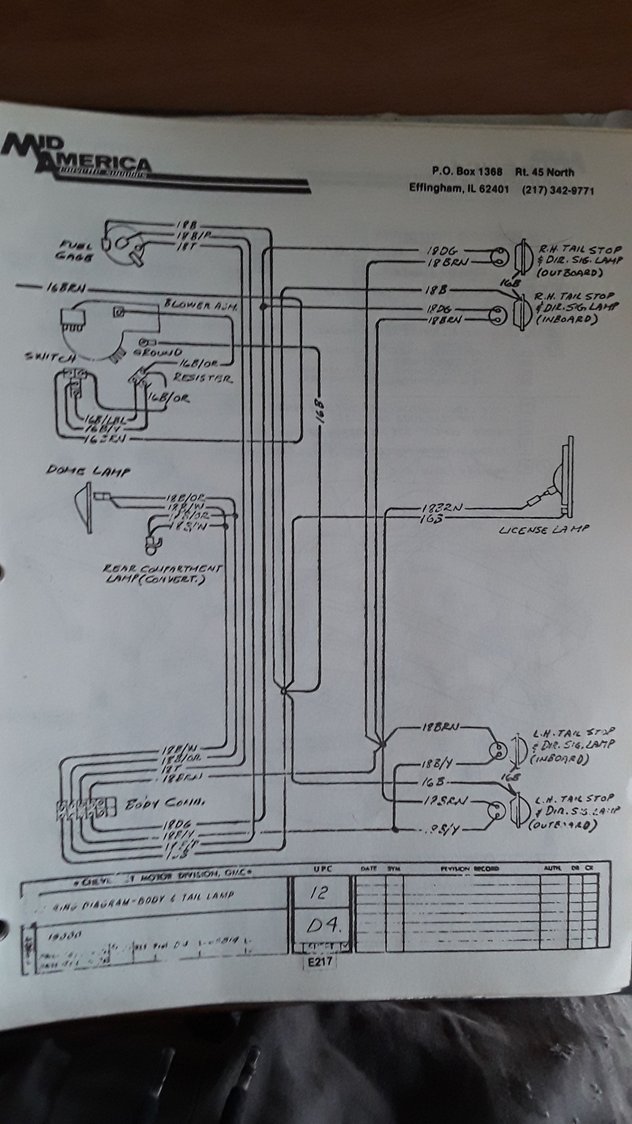 MID AMERICA
P.O. Box 1368 Rt. 45 North
Effingham, IL 62401 (217) 342-9771
18B
18B/P
18T
FUEL GAGE
18DG
18BRN
R.H. TAIL STOP
& DIR. SIG. LAMP
(OUTBOARD)
16B
16BRN
18B
BLOWER ASM.
R.H. TAIL STOP
& DIR. SIG. LAMP
(INBOARD)
18DG
18BRN
GROUND
SWITCH
16B/OR
RESISTER
16B/OR
16B
16B/LBL
16B/Y
16BRN
DOME LAMP
18B/OR
18B/W
18B/OR
18B/W
18BRN
16B
LICENSE LAMP
REAR COMPARTMENT
LAMP (CONVERT.)
18BRN
L.H. TAIL STOP
& DIR. SIG. LAMP
(INBOARD)
18B/W
18B/OR
18T
18BRN
18B/Y
16B
16B
BODY CONN.
18BRN
L.H. TAIL STOP
& DIR. SIG. LAMP
(OUTBOARD)
18DG
18B/Y
18B/P
B/Y
MOTOR DIVISION, G.M.C.
UPC
DATE SYM. REVISION RECORD AUTH. DR CK
DIAGRAM-BODY & TAIL LAMP
12
D4.
E217